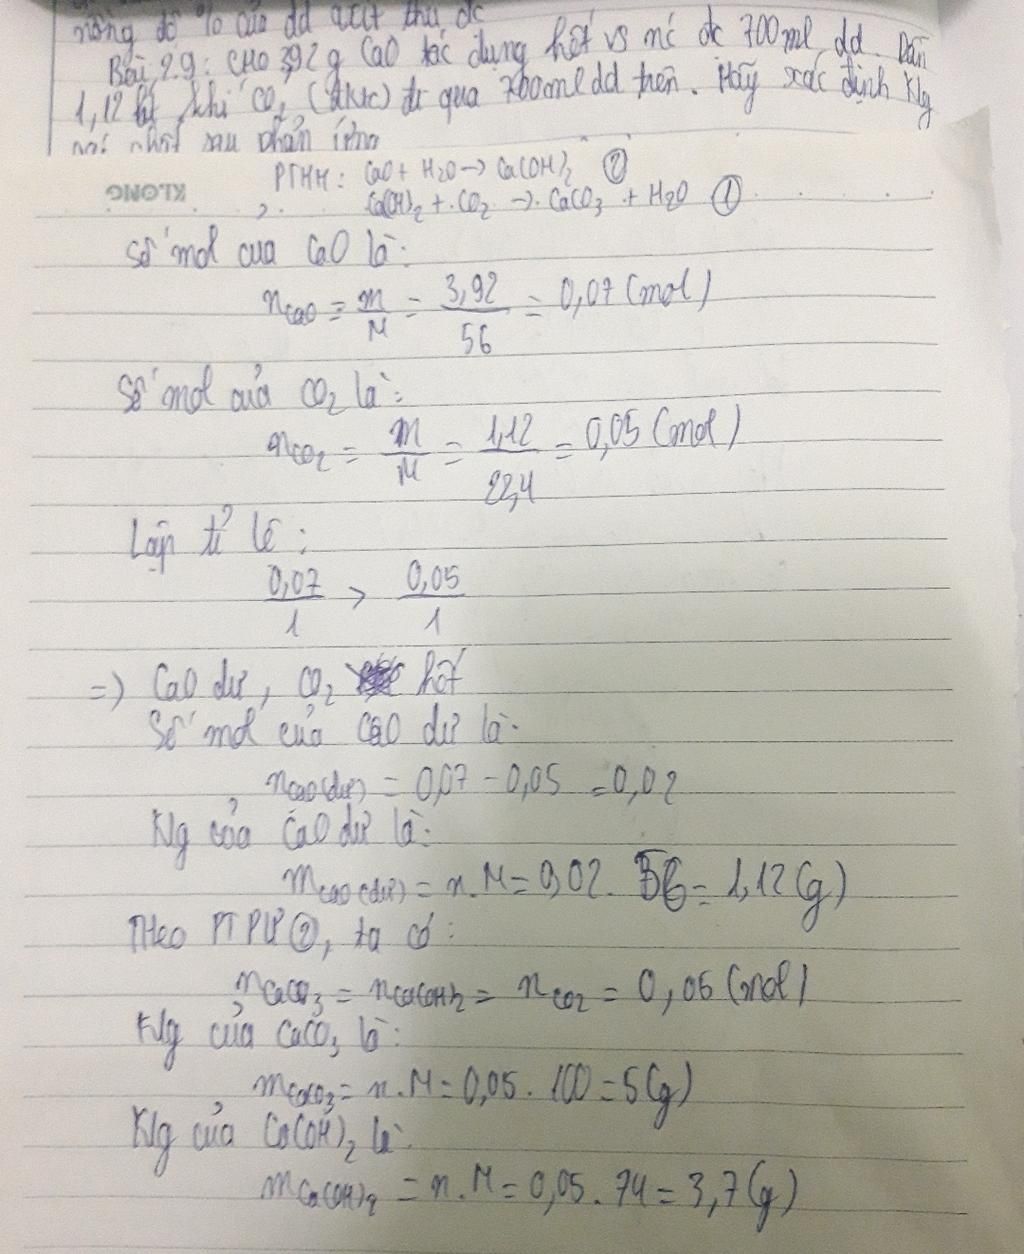 nồng độ % của dd axit thu đc
Bài 2.9: Cho 3,92 g CaO tác dụng hết vs nc đc 700ml dd. Dẫn
1,12 lít khí CO2 (đktc) đi qua 700ml dd trên. Hãy xác định klg
sau phản ứng
PTHH: CaO + H2O → Ca(OH)2 ②
KLONG
Ca(OH)2 + CO2 → CaCO3 + H2O ①
Số mol của CaO là:
nCaO = m/M = 3,92/56 = 0,07 (mol)
Số mol của CO2 là:
nCO2 = m/M = 1,12/22,4 = 0,05 (mol)
Lập tỉ lệ:
0,07/1 > 0,05/1
=) CaO dư, CO2 hết
Số mol của CaO dư là:
nCaO(dư) = 0,07 - 0,05 = 0,02
Klg của CaO dư là:
mCaO(dư) = n.M = 0,02. 56 = 1,12 (g)
Theo PTPƯ ②, ta có:
nCaCO3 = nCa(OH)2 = nCO2 = 0,05 (mol)
Klg của CaCO3 là:
mCaCO3 = n.M = 0,05. 100 = 5 (g)
Klg của Ca(OH)2 là:
mCa(OH)2 = n.M = 0,05. 74 = 3,7 (g)